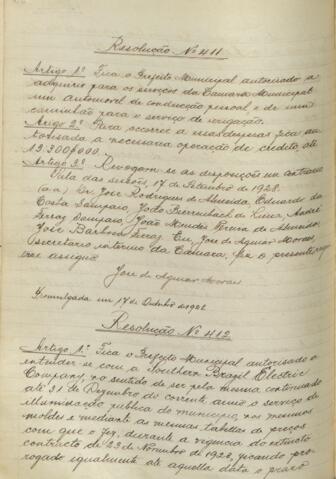 Resolução Nº 411
Artigo 1º Fica o Prefeito Municipal autorisado a
adquirir para os serviços da Camara Municipal
um automovel de conducção pessoal e de um
caminhão para o serviço de irrigação.
Artigo 2º Para occorrer a essas despesas fica au-
torisada a necessaria operação de credito até
12.300$000.
Artigo 3º Revogam-se as disposições em contrario
Sala das sessões, 17 de Setembro de 1928.
(a.a.) Dr. José Rodrigues de Almeida, Eduardo da
Costa Sampaio, João
Ferraz Sampaio, João Mendes
José Barbosa Ferraz Eu, José de Aguiar Moraes,
secretario interno da Camara, fiz o presente,
assigno
José de Aguiar Moraes
Promulgada em 17 de Outubro de 1928
Resolução Nº 412
Artigo 1º Fica o Prefeito Municipal autorisado a
entender-se com a Southern Brazil Electric
Company, no sentido de ser pela mesma continuado
até 31 de Dezembro do corrente anno o serviço de
illuminação publica do municipio, nos mesmos
moldes e mediante as mesmas tabellas de preços
com que o fez, durante a vigencia do extincto
contracto, de 23 de Novembro de 1923, ficando pro-
rogado igualmente até aquella data o prazo